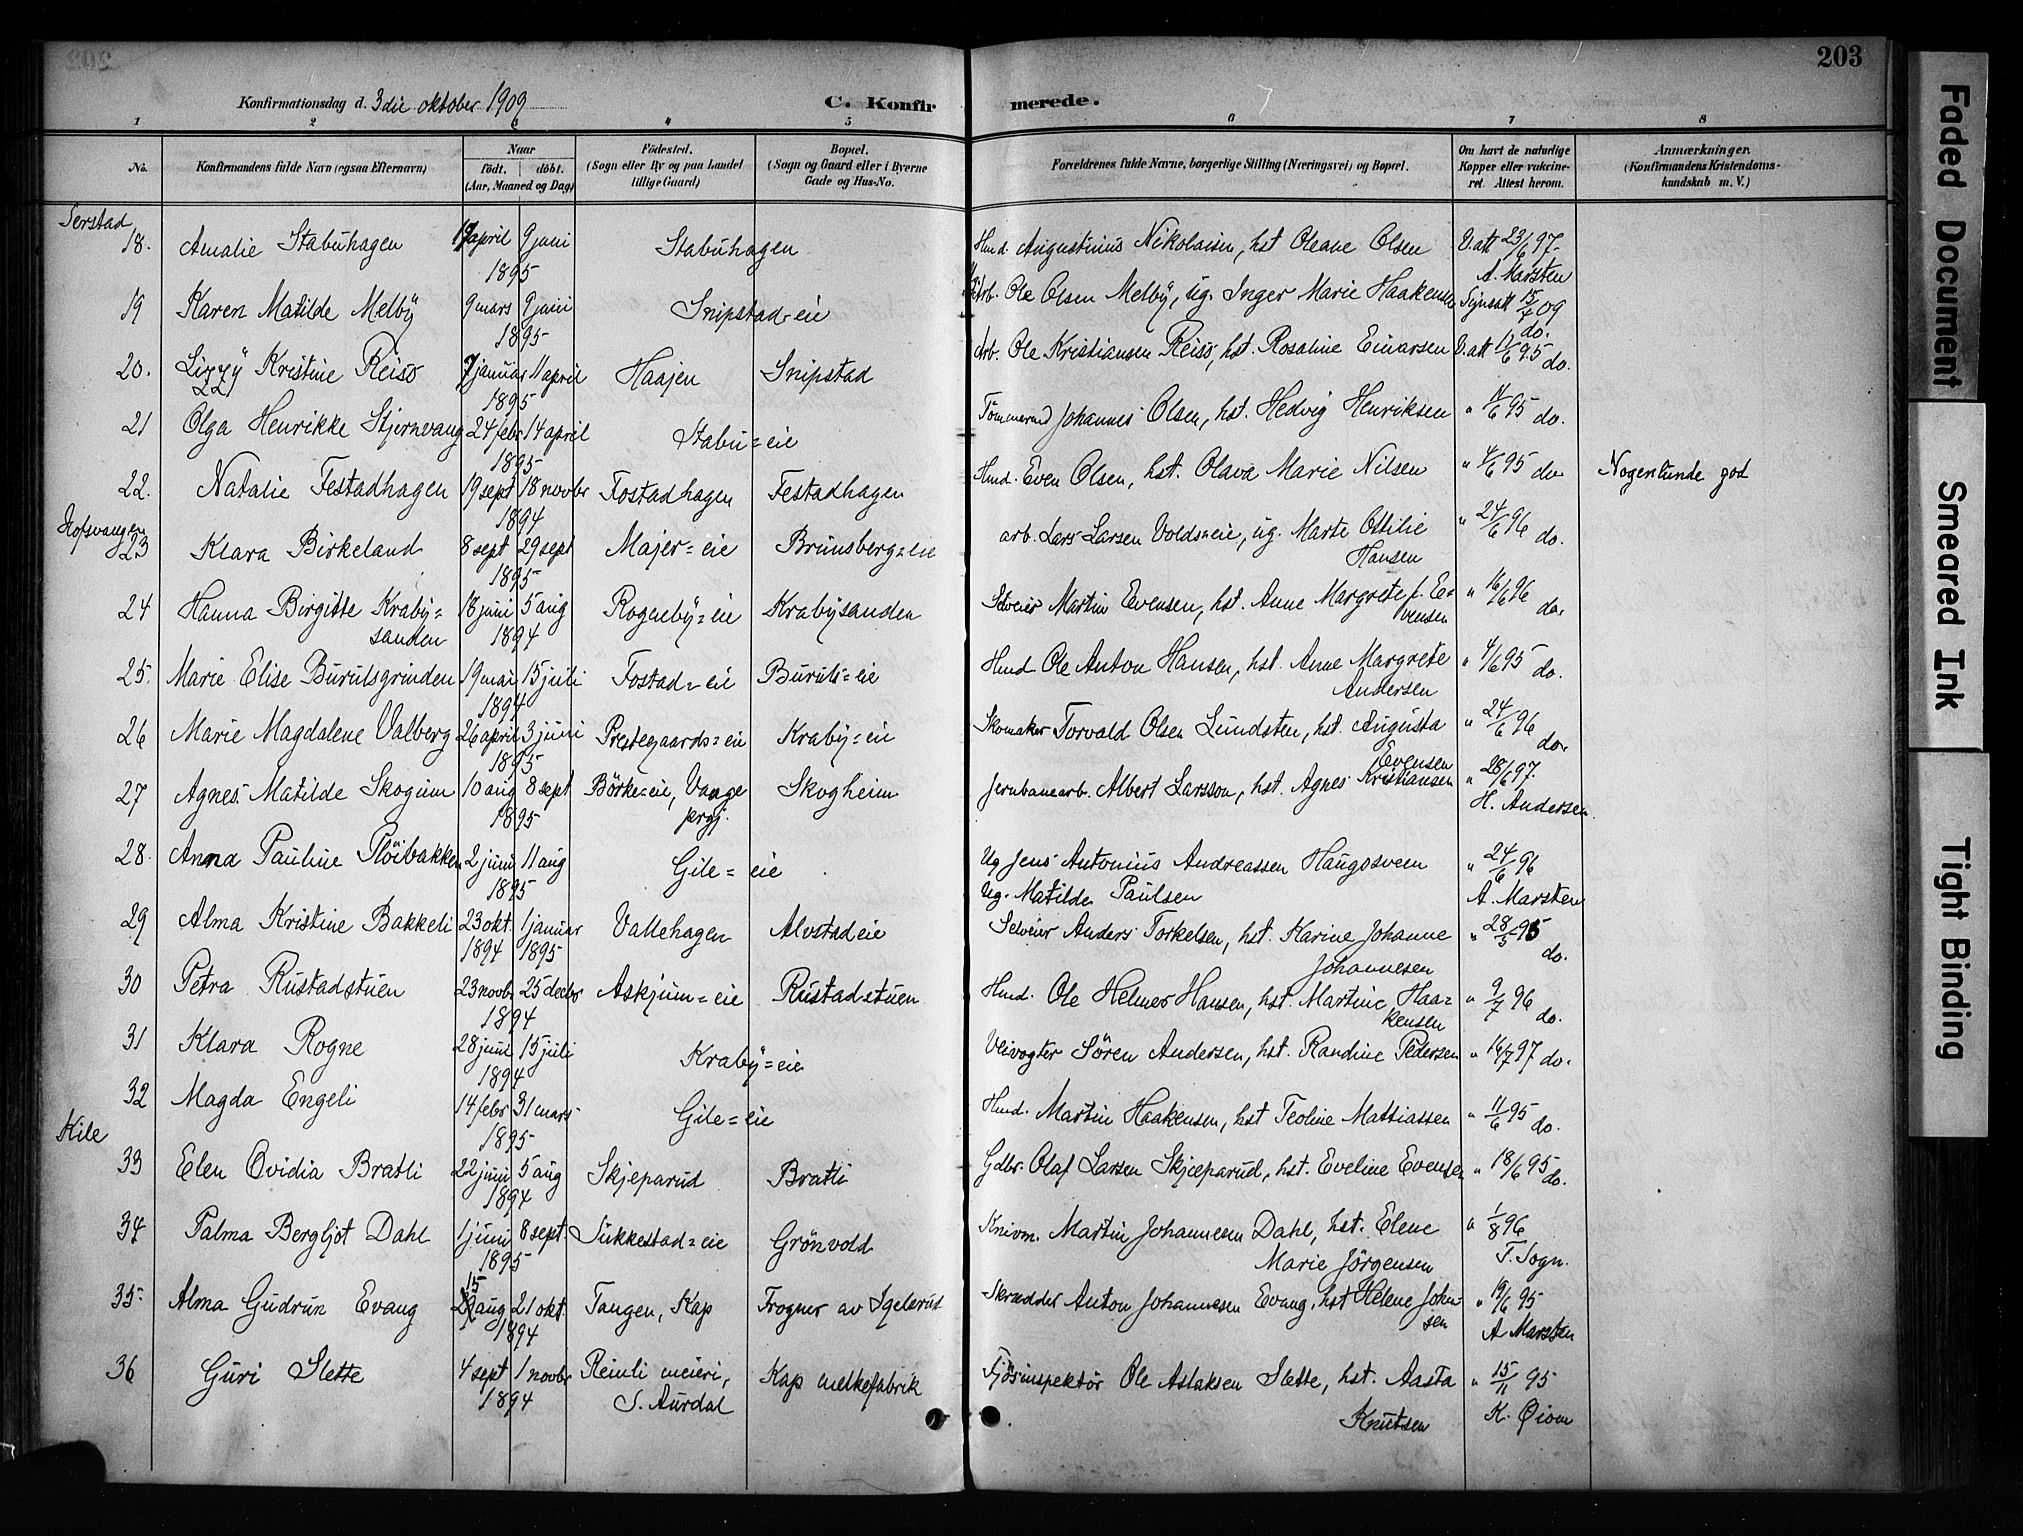 203
Konfirmationsdag d. 3die oktober 1909
C. Konfirmerede.
1 2 3 4 5 6 7 8
No.
Konfirmandens fulde Navn (ogsaa Efternavn)
Naar
födt. döbt.
(Aar, Maaned og Dag)
Födested.
(Sogn eller By og paa Landet
tillige Gaard)
Bopæl.
(Sogn og Gaard eller i Byerne
Gade og Hus-No.
Forældrenes fulde Navne, borgerlige Stilling (Næringsvei) og Bopæl.
Om havt de naturlige
Kopper eller vakcine-
ret. Attest herom.
Anmærkninger.
(Konfirmandens Kristendoms-
kundskab m. V.)
18. Amalie Stabuhagen 17 april 9 juni Stabuhagen Hmd. Augustinius Nikolaisen, hst Oleave Olsen V. att 23/6 97.
1895 A. Marsten
19 Karen Matilde Melby 9 mars 9 juni Snipstad=eie Arb. Ole Olsen Melby, ug. Inger Marie Haakensen Synsatt 15/7 09
1895 do.
20. Lizzy Kristine Reisö 7 januar 11 april Haajen Snipstad Arb. Ole Kristiansen Reisö, hst. Rosaline Einarsen V. att 11/6 95 do.
ZZ 1895
21 Olga Henrikke Stjernvang 24 febr 14 april Stabu=eie Tömmermd Johannes Olsen, hst. Hedvig Henriksen " 11/6 95 do.
1895
22. Natalie Festadhagen 19 sept 18 novbr Fostadhagen Festadhagen Hmd. Even Olsen, hst. Olava Marie Nilsen " 4/6 95 do Nogenlunde god
1894
23 Klara Birkeland 8 sept 29 sept Majer=eie Brunsberg=eie arb. Lars Larsen Volds=eie, ug. Marte Ottilie Hansen " 24/6 96 do.
1895
24 Hanna Birgitte Kraby= 18 juni 5 aug Rogneby=eie Krabysanden Selveier Martin Evensen, hst. Anne Margrete f. Evensen " 16/6 96 do.
sanden 1894
25. Marie Elise Burulsgrinden 19 mai 15 juli Fostad=eie Buruls=eie Hmd Ole Anton Hansen, hst. Anne Margrete Andersen " 4/6 95 do.
1894
26 Marie Magdalene Valberg 26 april 3 juni Prestegaards=eie Kraby=eie Skomaker Torvald Olsen Lundsten, hst. Augusta Evensen " 24/6 96 do.
1895
27 Agnes Matilde Skogum 10 aug 8 sept Börke=eie, Vange Skogheim Jernbanearb. Albert Larsson, hst. Agnes Kristiansen " 28/6 97.
1895 prgj. H. Andersen
28. Anna Pauline Plöibakken 2 juni 11 aug Gile=eie Ug Jens Antonius Andreassen Haugosveen " 24/6 96
1895 Ug. Matilde Paulsen A. Marsten
29 Alma Kristine Bakkeli 23 okt. 1 januar Vallehagen Alvstadeie Selveier Anders Torkelsen, hst. Karine Johanne " 28/5 95
1894 1895 Johannesen do.
30 Petra Rustadstuen 23 novbr 25 decbr Askjum=eie Rustadstuen Hmd. Ole Helmer Hansen, hst. Martine Haakensen " 9/7 96 do.
1894
31 Klara Rogne 28 juni 15 juli Kraby=eie Veivogter Sören Andersen, hst. Randine Pedersen " 16/7 97 do.
1894
32 Magda Engeli 14 febr 31 mars Gile=eie Hmd. Martin Haakensen, hst Teoline Mattiassen " 11/6 95 do.
1895
Kile
33 Elen Ovidia Bratli 22 juni 5 aug Skjeparud Bratli Gdbr. Olaf Larsen Skjeparud, hst. Eveline Evensen " 18/6 95 do.
1894
34 Palma Bergljot Dahl 1 juni 8 sept. Sukkestad=eie Grönvold Knivm. Martin Johannesen Dahl, hst. Elene " 1/8 96
1895 Marie Jörgensen T. Sogn.
35 Alma Gudrun Evang 15 aug 21 okt. Tangen, Kap Frogner av Sgelerud Skrædder Anton Johannesen Evang, hst Helene Johnsen " 19/6 95
1894 A Marsten
36 Guri Slette 4 sept 1 novbr Reinli meieri, Kap melkefabrik Fjösinspektör Ole Aslaksen Slette, hst. Aasta " 15/11 95
1894 S. Aurdal Knutsen K. Øien
Faded Document
Smeared Ink
Tight Binding